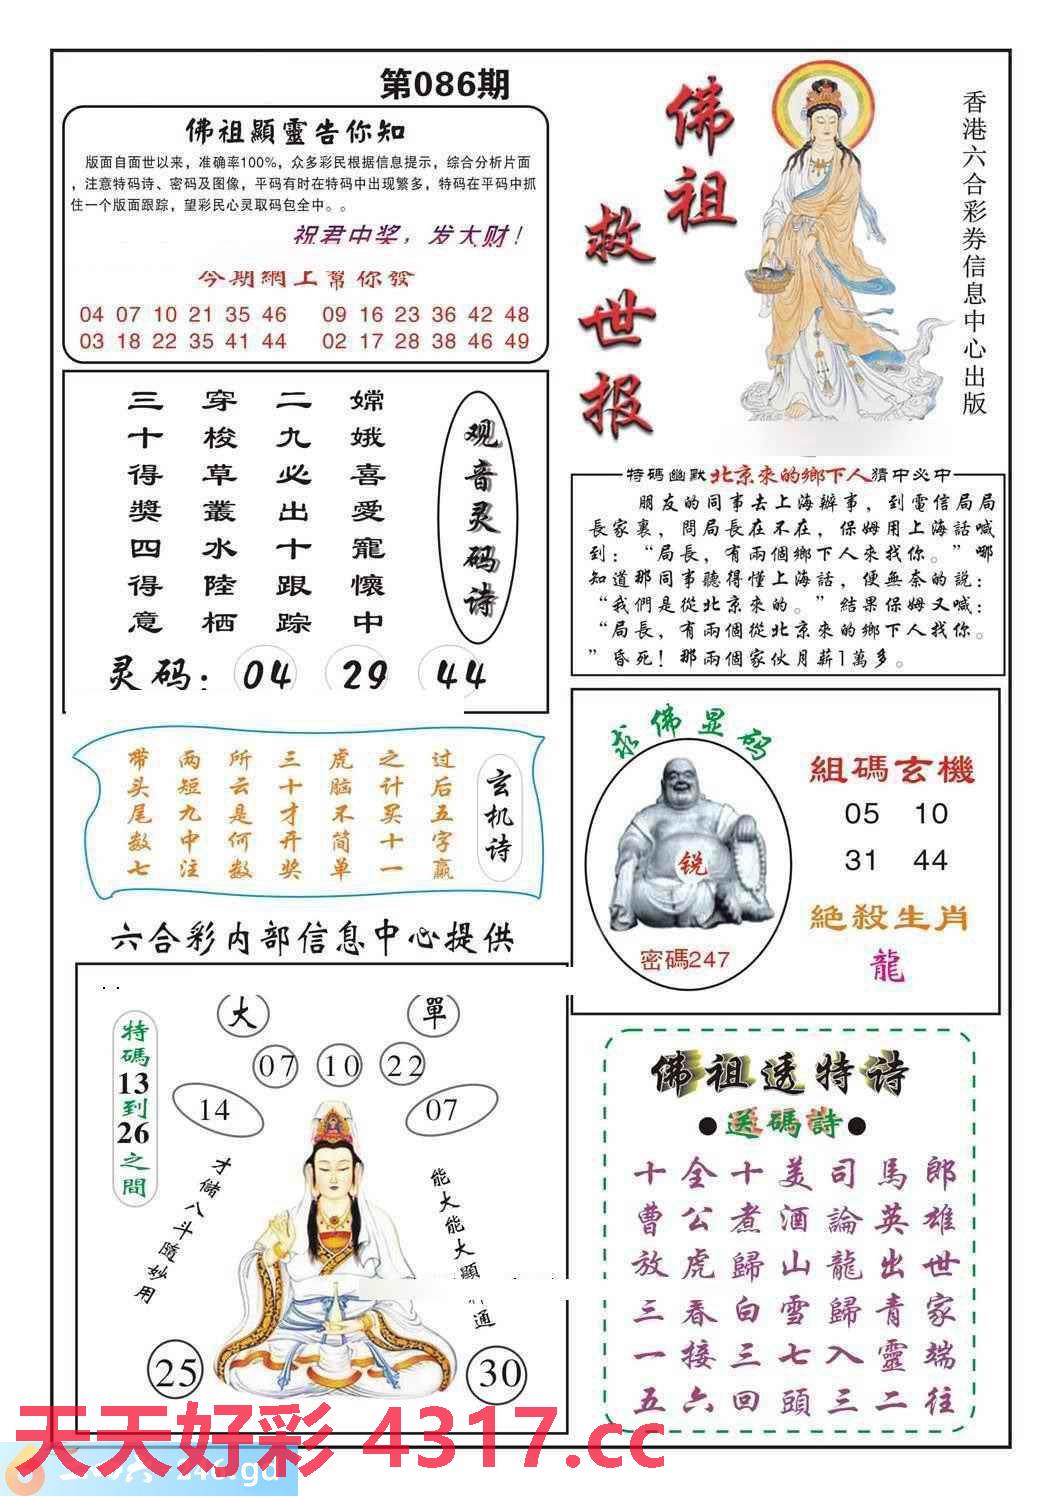 第086期
佛祖顯靈告你知
版面自面世以来，准确率100%，众多彩民根据信息提示，综合分析片面
，注意特码诗、密码及图像，平码有时在特码中出现繁多，特码在平码中抓
住一个版面跟踪，望彩民心灵取码包全中。。
祝君中奖，发大财！
今期網上幫你發
04 07 10 21 35 46 09 16 23 36 42 48
03 18 22 35 41 44 02 17 28 38 46 49
佛祖
救世报
香港六合彩券信息中心出版
观音灵码诗
嫦娥喜愛寵懷中
二九必出十跟踪
穿梭草叢水陸栖
三十得獎四得意
灵码：04 29 44
特碼幽默北京來的鄉下人猜中必中
朋友的同事去上海辦事，到電信局局
長家裏，問局長在不在，保姆用上海話喊
到：“局長，有兩個鄉下人來找你。”哪
知道那同事聽得懂上海話，便無奈的説：
“我們是從北京來的。”結果保姆又喊：
“局長，有兩個從北京來的鄉下人找你。
”昏死！那兩個家伙月薪1萬多。
玄机诗
过后五字赢
之计买十一
虎脑不简单
三十才开奖
所云是何数
两短九中注
带头尾数七
求佛显码
锐
密碼247
組碼玄機
05 10
31 44
絕殺生肖
龍
六合彩内部信息中心提供
大 單
07 10 22
14 07
特碼13到26之間
才儲八斗隨妙用
能大能大顯 通
25 30
佛祖透特诗
●送碼詩●
十全十美司馬郎
曹公煮酒論英雄
放虎歸山龍出世
三春白雪歸青家
一接三七入靈端
五六回頭三二往
天天好彩 4317.cc
246.gd